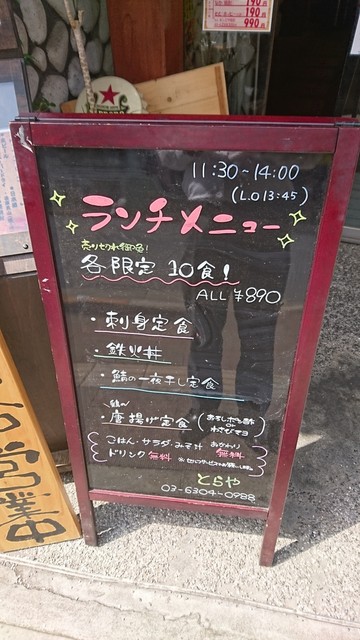 190円
190円
11:30～14:00
(L.O 13:45)
ランチメニュー
売り切れ御免!
各限定 10食!
ALL ¥890
・刺身定食
・鉄火丼
・鯖の一夜干し定食
・鶏の唐揚げ定食 (おろしポン酢 or わさびマヨ)
ごはん・サラダ・みそ汁 おかわり無料
ドリンク 無料
とらや
03-6304-0988
営業中